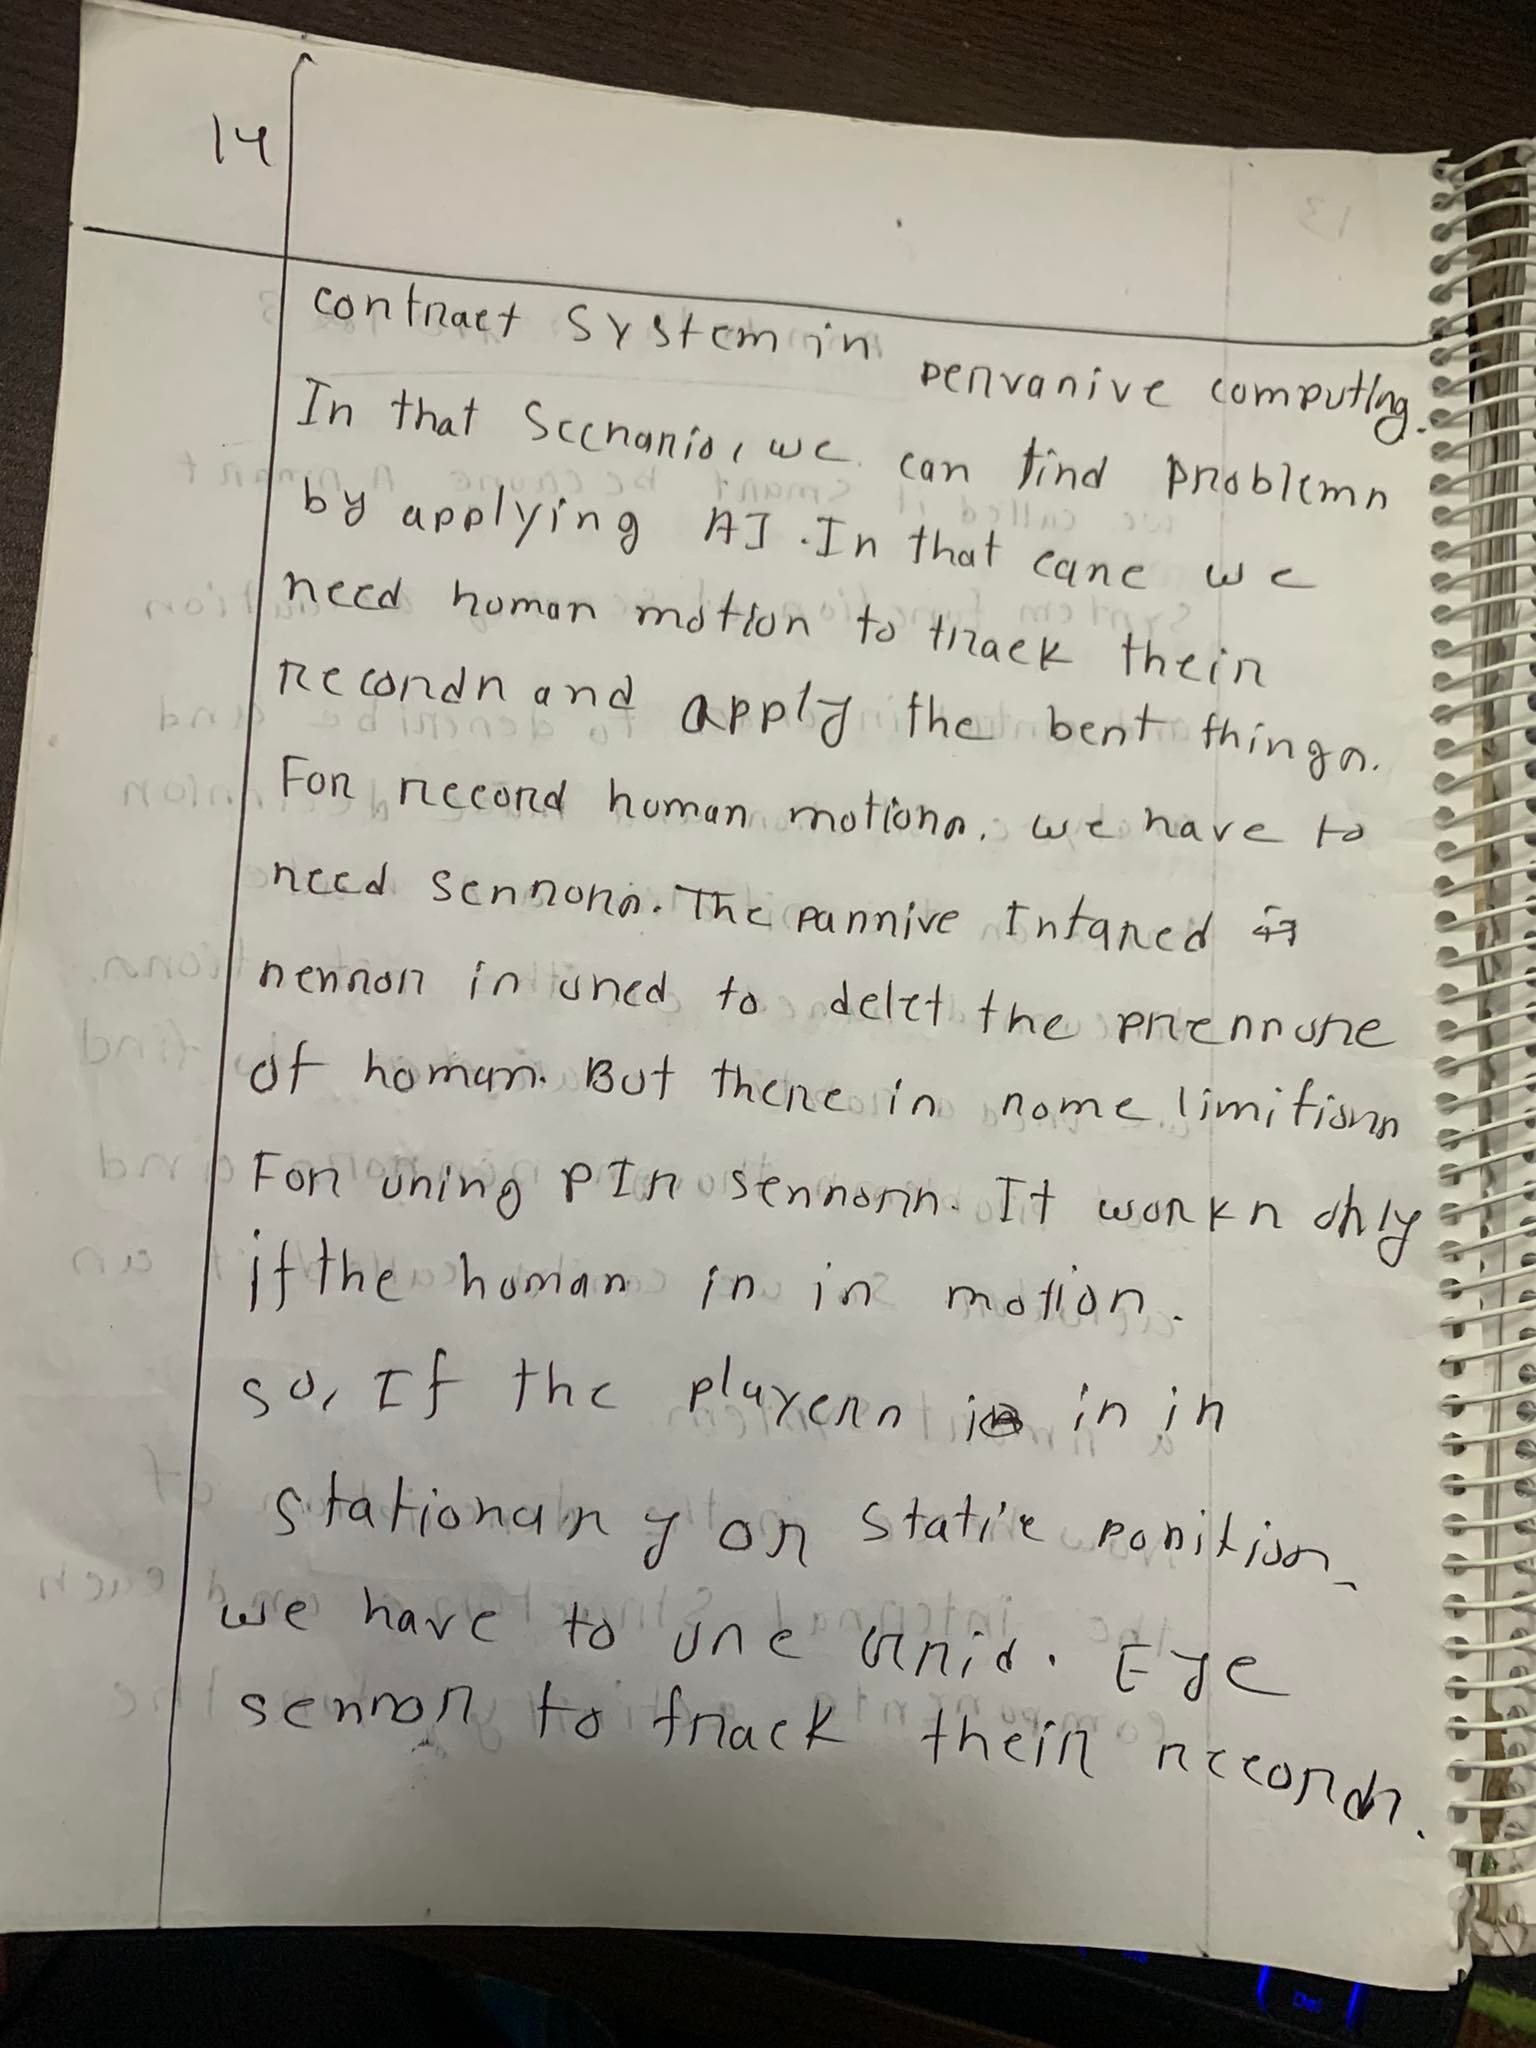 14
contract system in pervasive computing.
In that Scenario, we can find problems
by applying AI. In that case we
need human motion to track their
records and apply the best things.
For record human motions, we have to
need sensors. The passive Infared
sensor is used to detet the pressure
of human. But there is some limitions
For using PIR sensors. It works only
if the human is in motion.
so, If the players is in
stationary or static position
we have to use Grid. Eye
sensor to track their records.